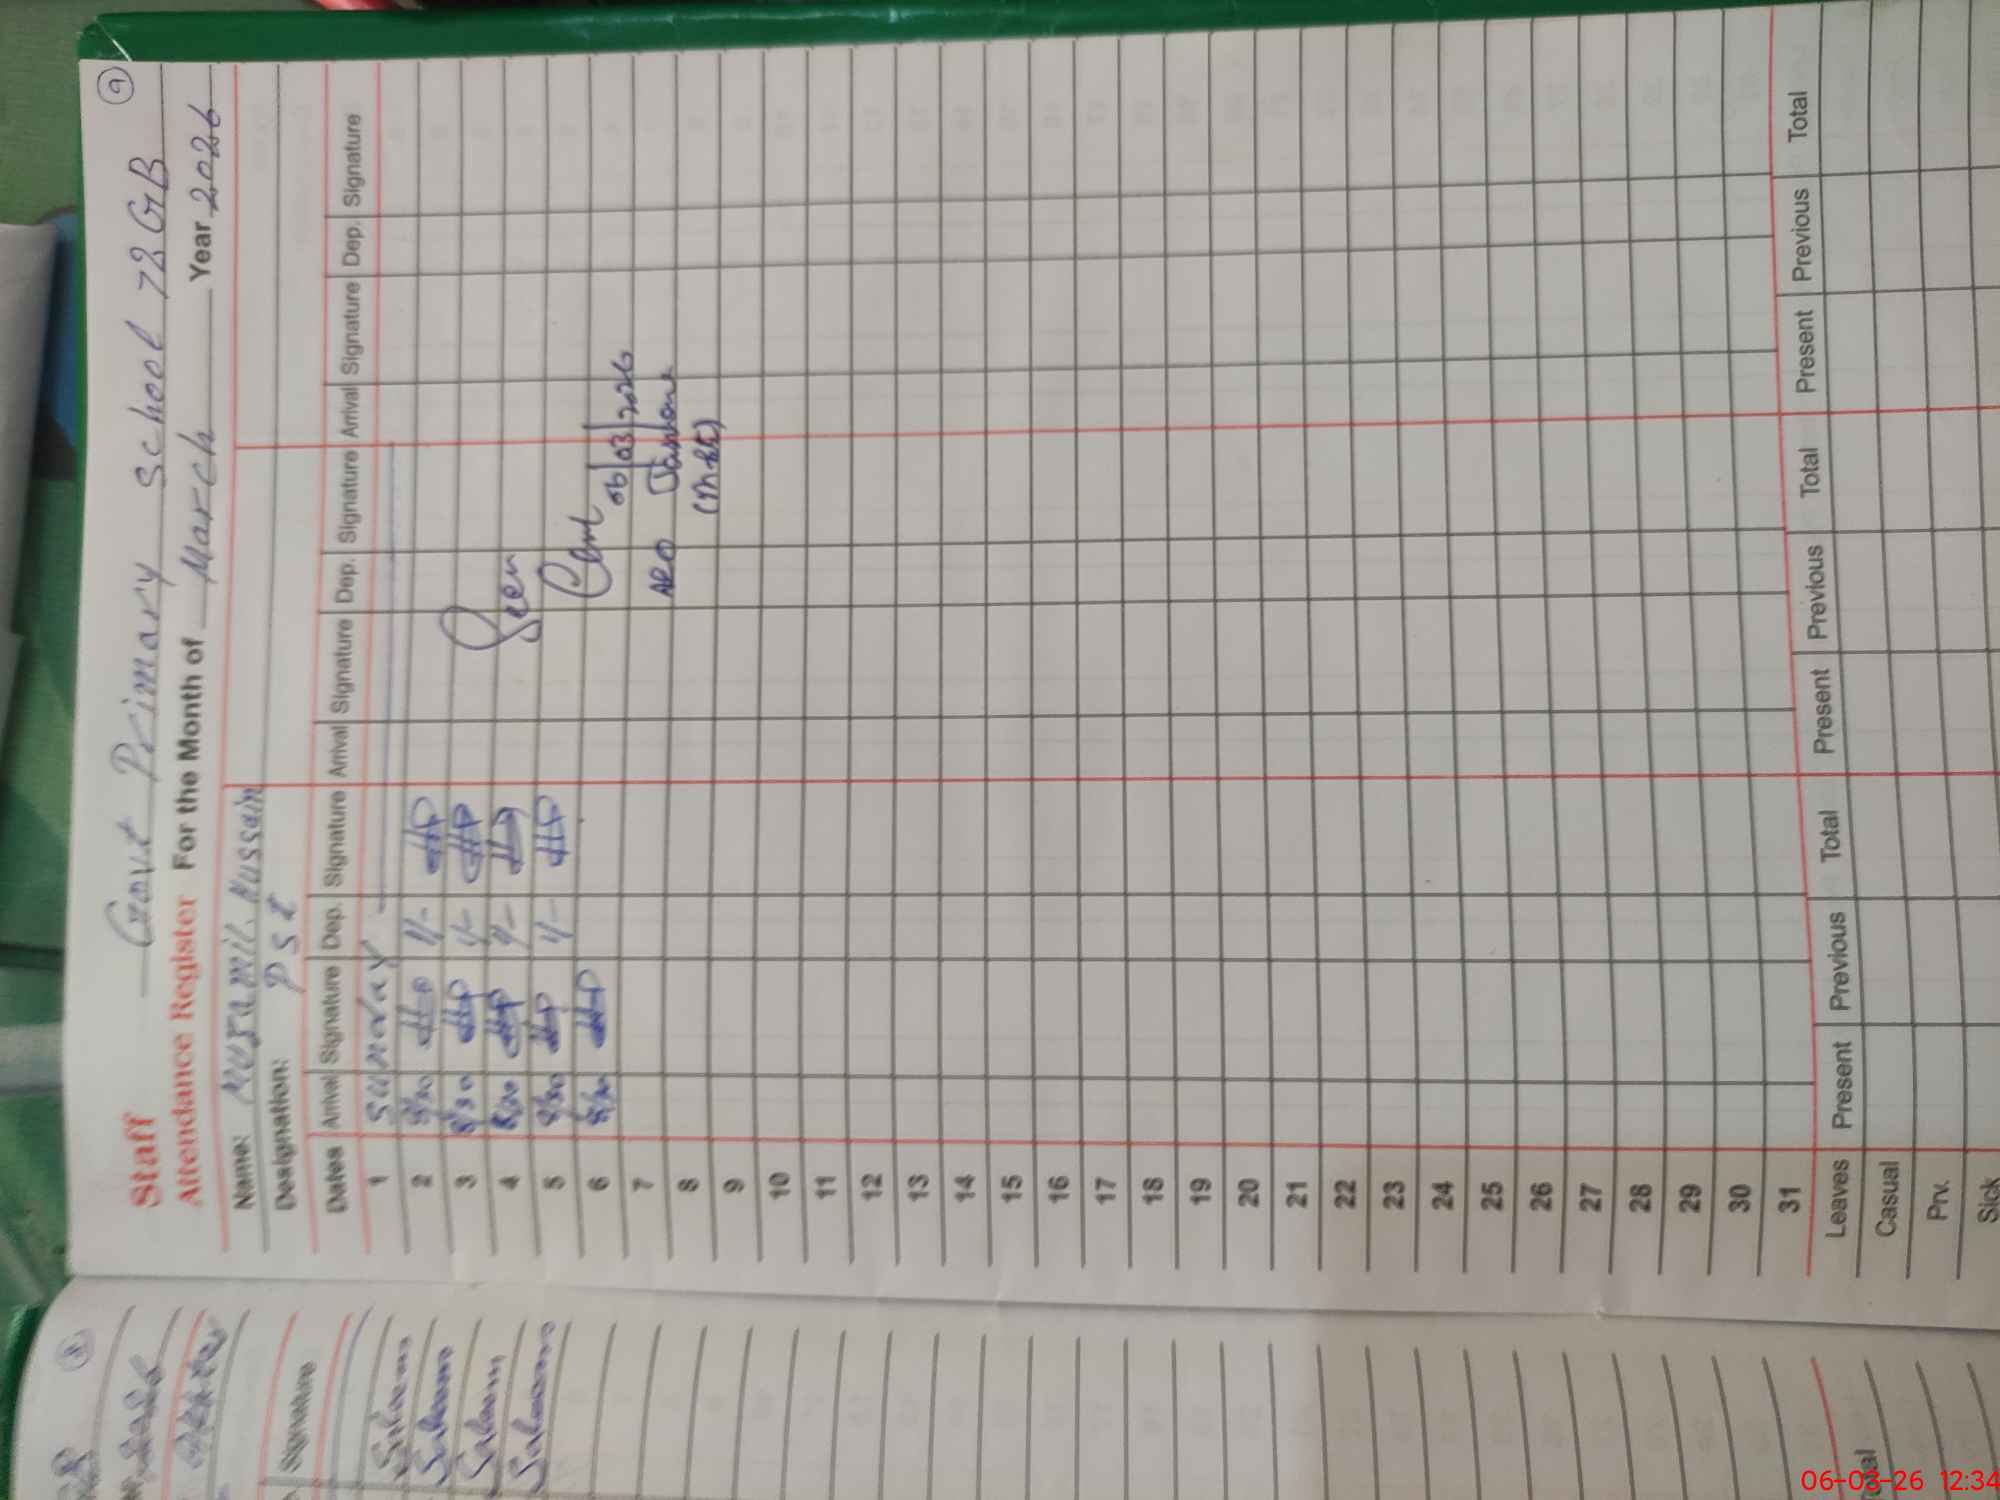 9
Staff Govt Primary School 72 GB
Attendance Register For the Month of March Year 2026
Name: Muzamil Hussain
Designation: PST
Dates Arrival Signature Dep. Signature Arrival Signature Dep. Signature Arrival Signature Dep. Signature
1 Sunday
2 8/30 1/-
3 8/30 1/-
4 8/30 1/-
5 8/30 1/-
6 8/30
Seen
06/03/2026
AEO
7
8
9
10
11
12
13
14
15
16
17
18
19
20
21
22
23
24
25
26
27
28
29
30
31
Leaves Present Previous Total Present Previous Total Present Previous Total
Casual
Prv.
Sick
8
2026
Signature
Saleem
Saleem
Saleem
Saleem
Total
06-03-26 12:34